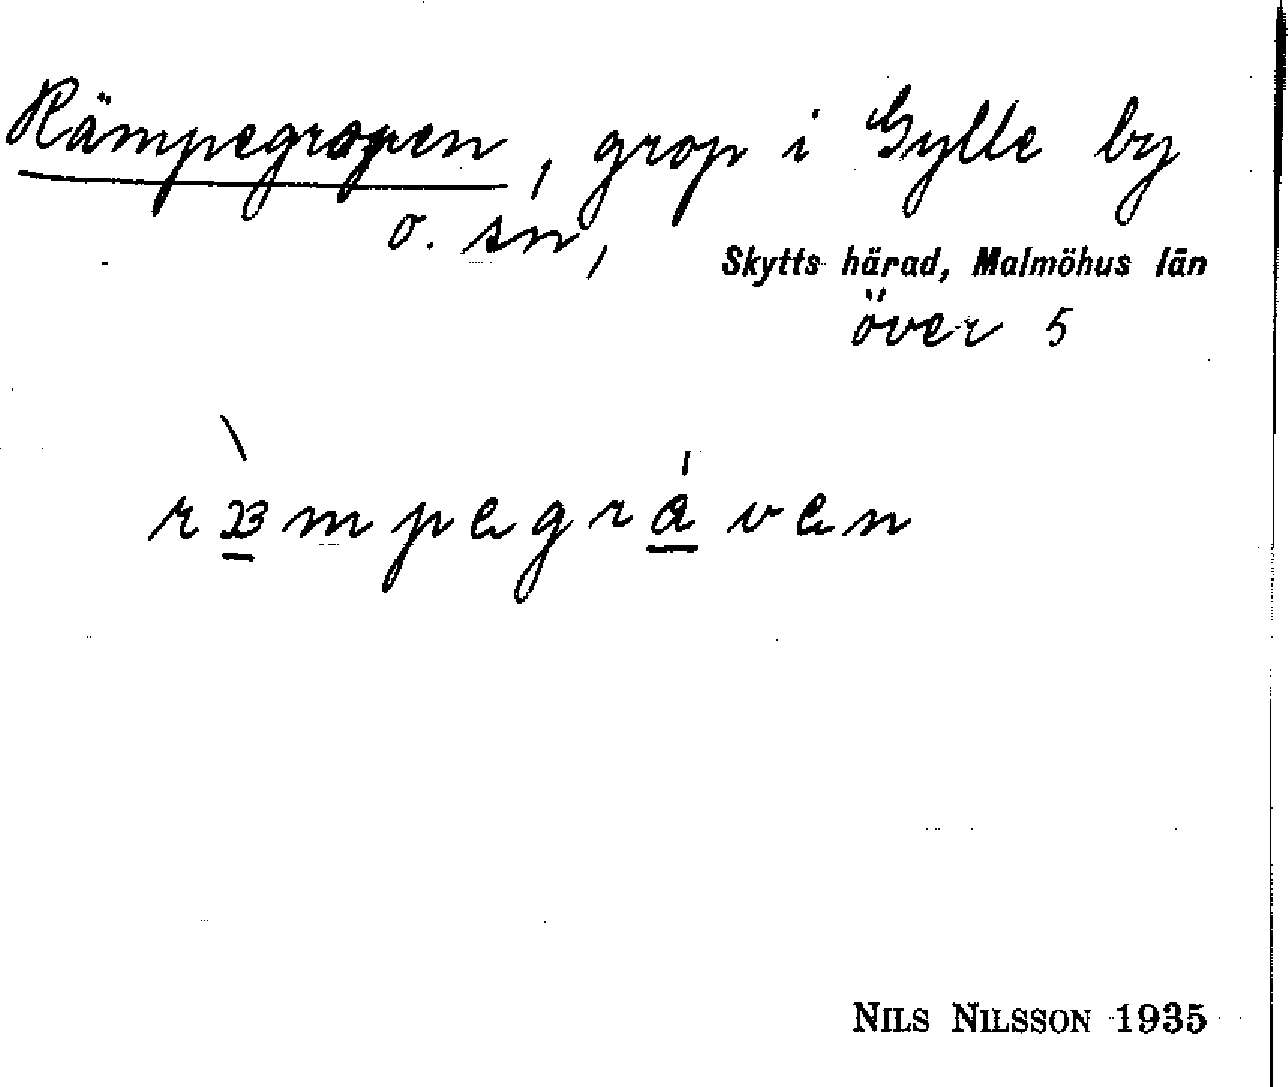 Rämpegropen, grop i Gylle by
o. sn,
Skytts härad, Malmöhus län
över 5
ræmpegráven
NILS NILSSON 1935